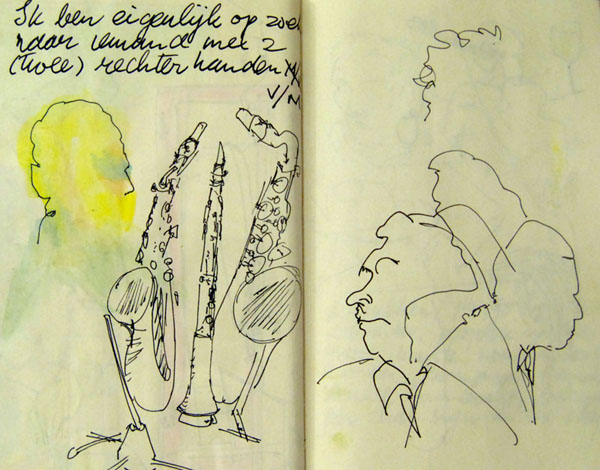 Ik ben eigenlijk op zoek
naar iemand met 2
(twee) rechter handen
V/M